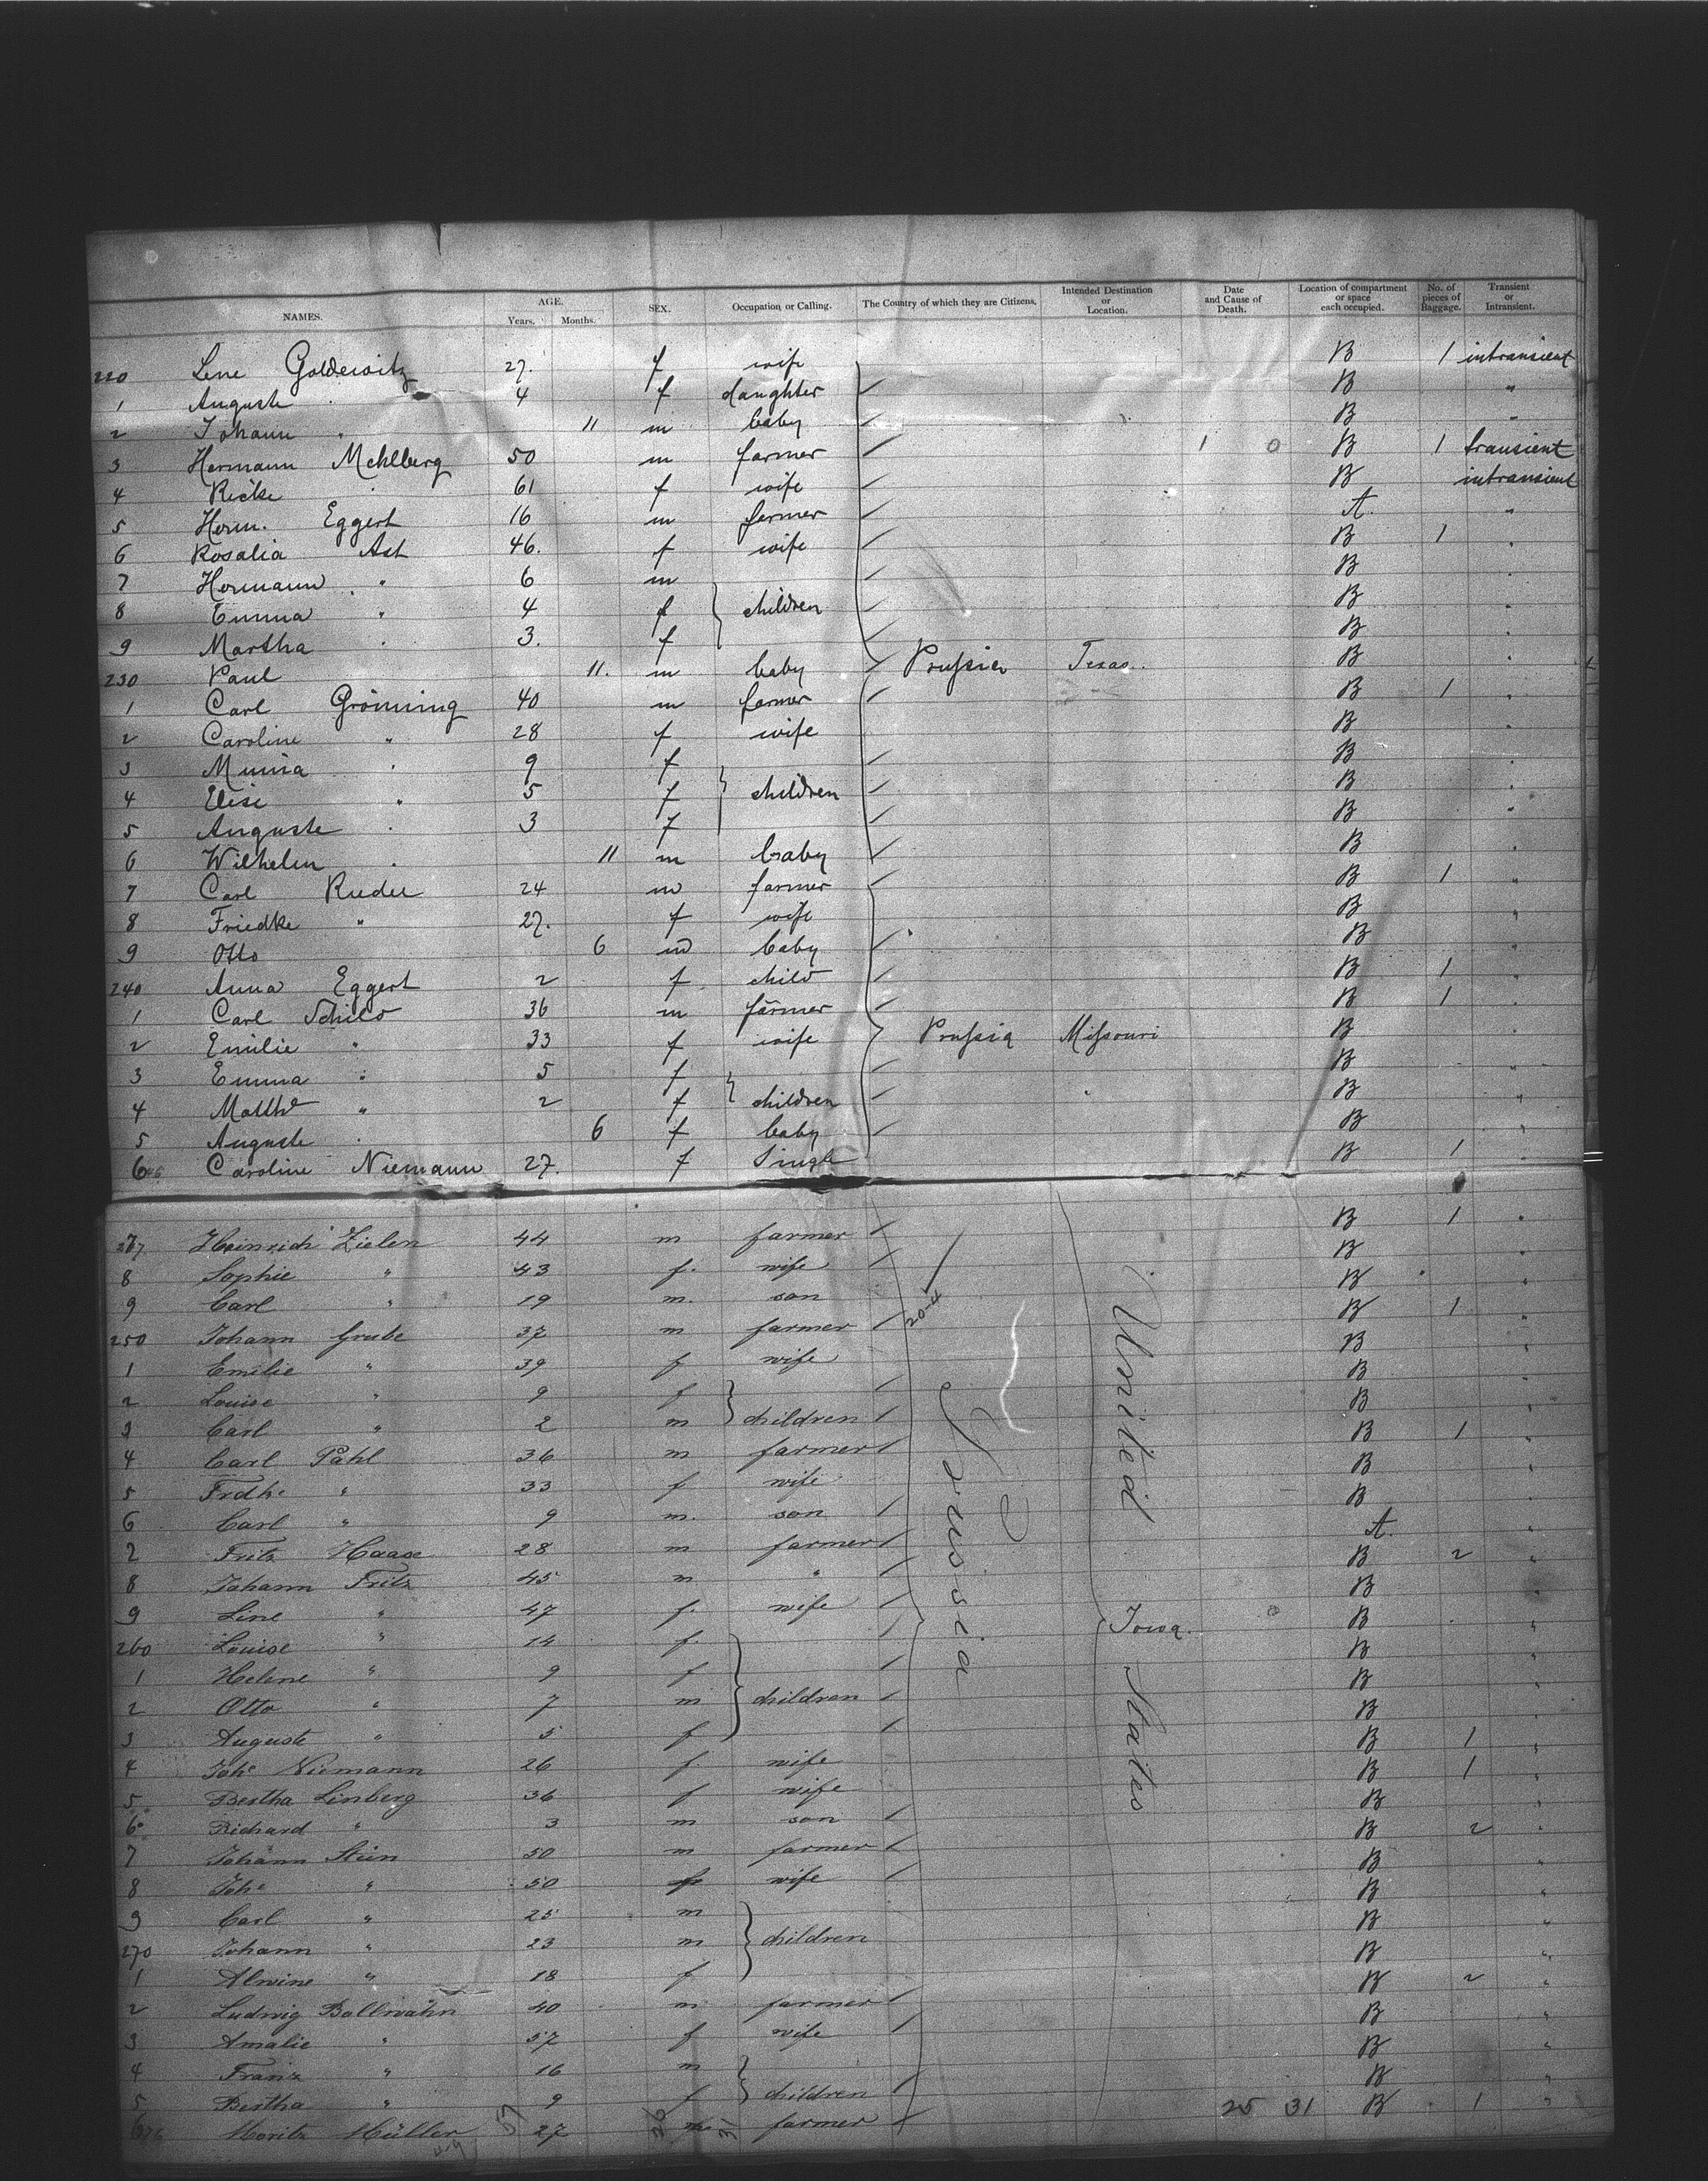 NAMES. AGE. Years. Months. SEX. Occupation or Calling. The Country of which they are Citizens. Intended Destination or Location. Date and Cause of Death. Location of compartment or space each occupied. No. of pieces of Baggage. Transient or Intransient.
220 Lene Goldewitz 27. f wife B 1 intransient
1 Auguste 4 f daughter B "
2 Johann " 11 m baby B "
3 Hermann Mehlberg 50 m farmer 1 0 B 1 transient
4 Ricke 61 f wife B intransient
5 Herm. Eggert 16 m farmer A. "
6 Rosalia Ast 46. f wife B 1 "
7 Hermann " 6 m B "
8 Emma " 4 f children B "
9 Martha " 3. f B "
230 Paul 11. m baby Prussia Texas. B "
1 Carl Gröning 40 m farmer B 1 "
2 Caroline " 28 f wife B "
3 Minna " 9 f B "
4 Elise " 5 f children B "
5 Auguste " 3 f B "
6 Wilhelm " 11 m baby B "
7 Carl 24 m farmer B 1 "
8 Friedke " 27. f wife B "
9 Otto 6 m baby B "
240 Anna Eggert 2 f child B 1 "
1 Carl Schild 36 m farmer B 1 "
2 Emilie " 33 f wife Prussia Missouri B "
3 Emma " 5 f B "
4 Mathe " 2 f children B "
5 Auguste " 6 f baby B "
6 Caroline Niemann 27. f Single B 1 "
247 Heinrich Zielen 44 m farmer B 1 "
8 Sophie " 43 f. wife B "
9 Carl " 19 m. son B "
250 Johann Grube 37 m farmer 20-4 B 1 "
1 Emilie " 39 f wife B "
2 Louise " 9 f B "
3 Carl " 2 m children B "
4 Carl Pahl 36 m farmer B 1 "
5 Frdke " 33 f wife B "
6 Carl " 9 m. son B "
7 Fritz Haase 28 m farmer A. "
8 Johann Fritz 45 m " B 2 "
9 Line " 47 f. wife B "
260 Louise " 14 f. Prussia Iowa. United States B "
1 Helene " 9 f B "
2 Otto " 7 m children B "
3 Auguste " 5 f B "
4 Johe Niemann 26 f. wife B 1 "
5 Bertha Linberg 36 f wife B 1 "
6 Richard " 3 m son B "
7 Johann Stein 50 m farmer B 2 "
8 Johe " 50 f wife B "
9 Carl " 25 m B "
270 Johann " 23 m children B "
1 Alwine " 18 f B "
2 Ludwig Ballwahn 40 m farmer B 2 "
3 Amalie " 57 f wife B "
4 Franz " 16 m B "
5 Bertha " 9 f children B "
276 Moritz Müller 27 m farmer 25 31 B 1 "